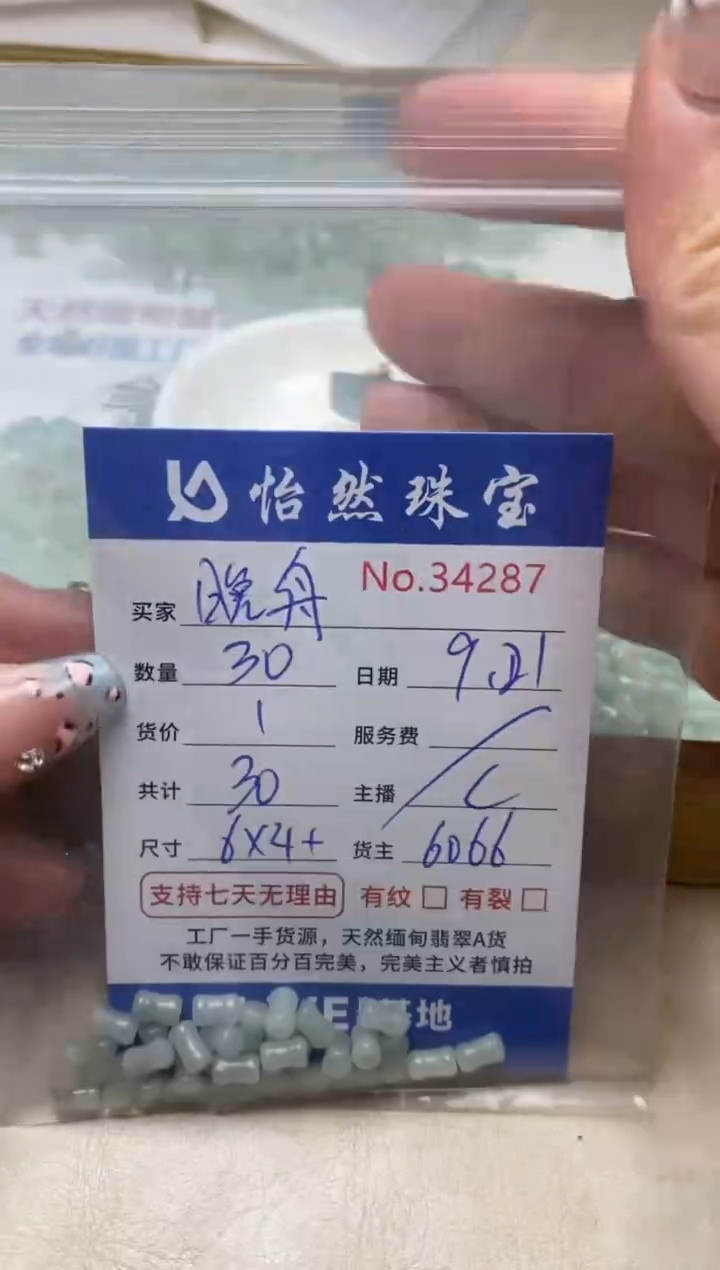 怡然珠宝
No.34287
买家 晚舟
数量 30 日期 9.21
货价 1 服务费 /
共计 30 主播 C
尺寸 6X4+ 货主 6066
支持七天无理由 有纹 □ 有裂 □
工厂一手货源，天然缅甸翡翠A货
不敢保证百分百完美，完美主义者慎拍
基地